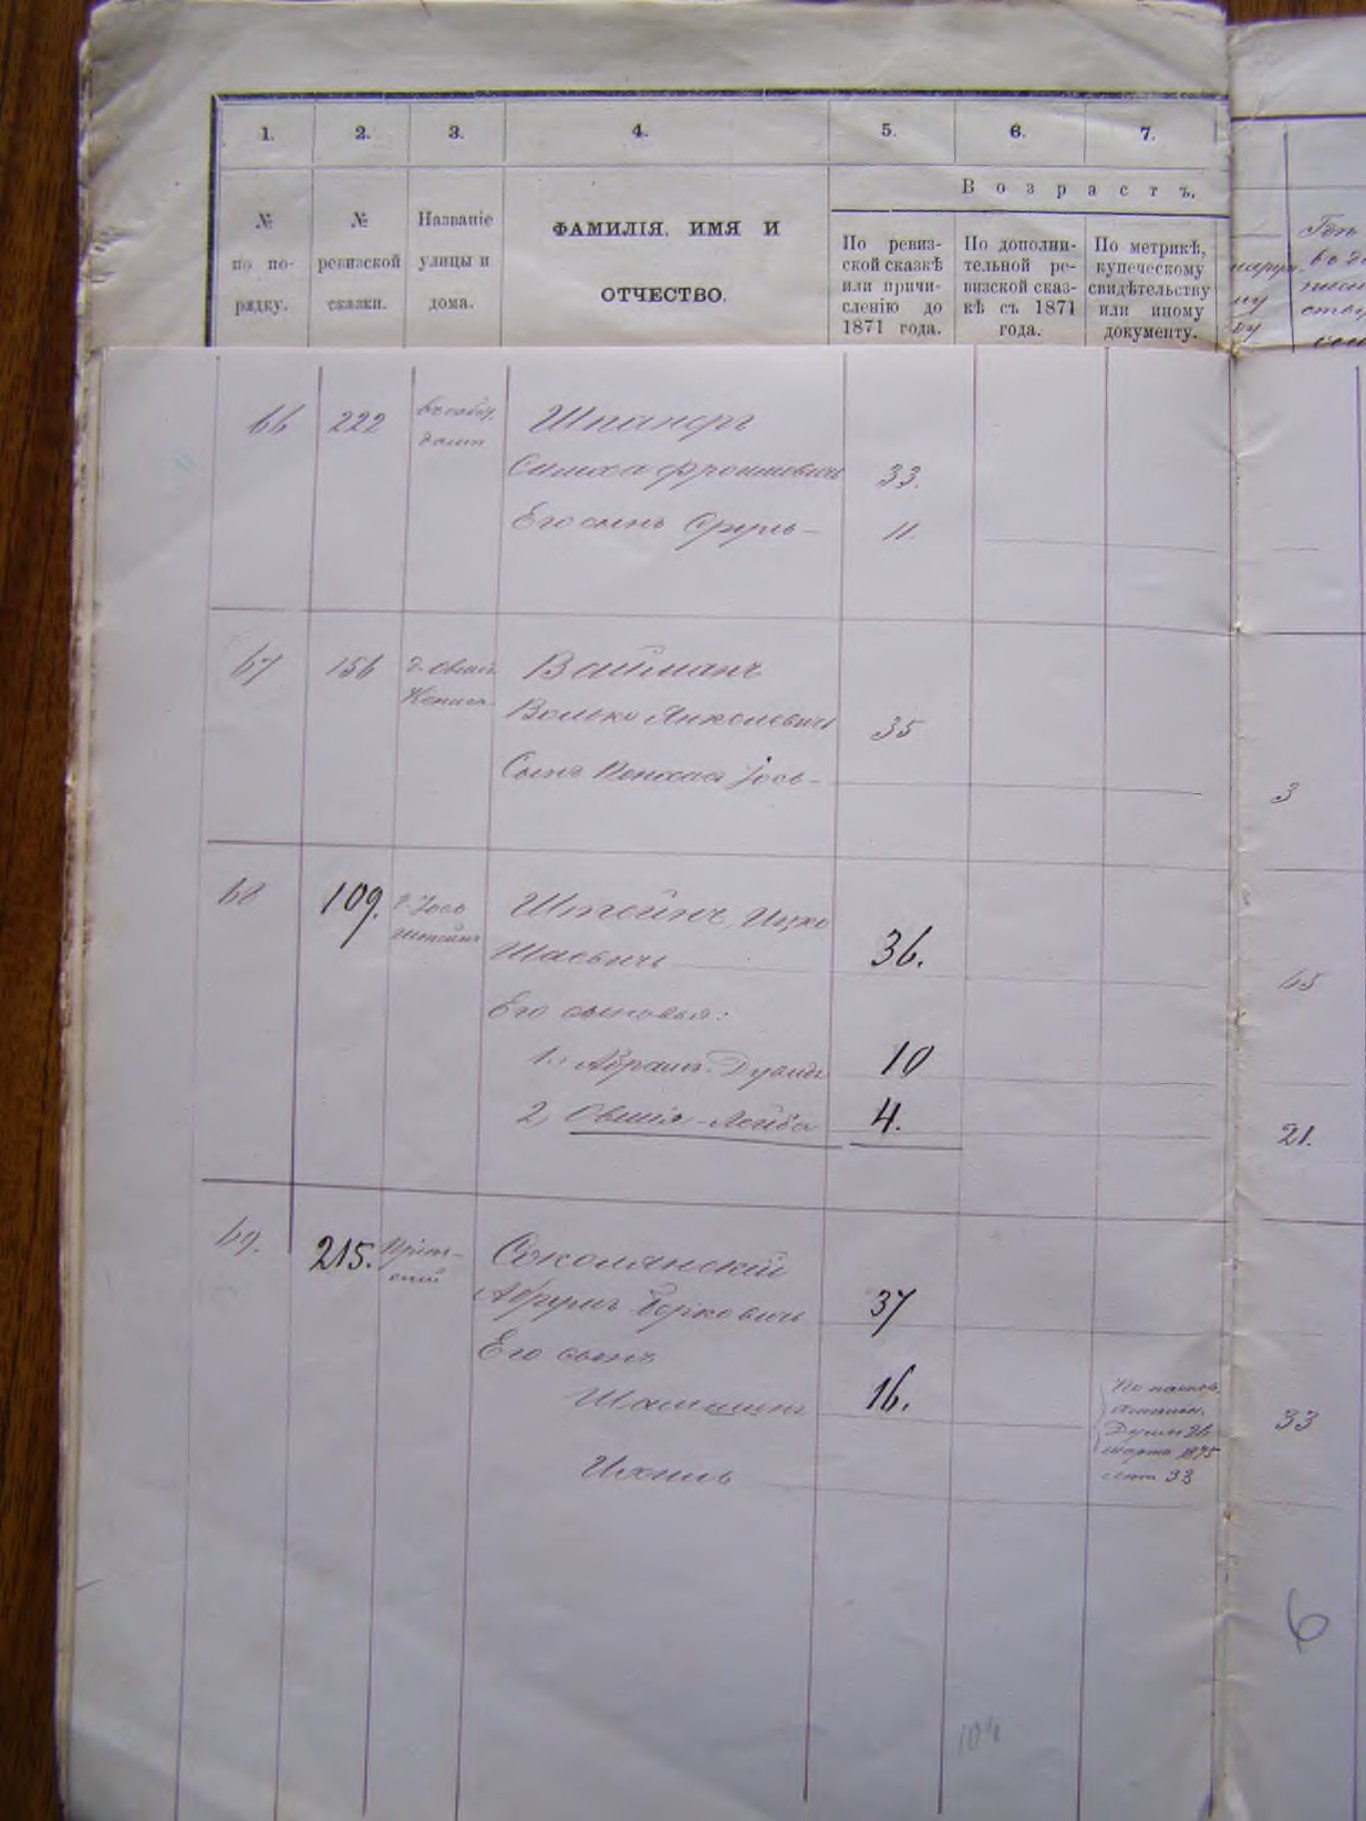 1. 2. 3. 4. 5. 6. 7.
Возрастъ.
№ по порядку.
№ ревизской сказки.
Названіе улицы и дома.
ФАМИЛІЯ, ИМЯ И
ОТЧЕСТВО.
По ревиз-
ской сказкѣ
или причи-
сленію до
1871 года.
По дополни-
тельной ре-
визской сказ-
кѣ съ 1871
года.
По метрикѣ,
купеческому
свидѣтельству
или иному
документу.
66 222
Симха Фроимовичъ 33.
Его сынъ Сруль 11.
67 156 Вайманъ
Волько Янкелевичъ 35
Сынъ Іось 3
68 109. Іось Штейнъ
Штейнъ Ицко
Шаевичъ 36. 65
Его сыновья:
1. Абрамъ 10
2, Овшія-Лейба 4. 21.
69. 215. Соколянскій
Абрумъ Берковичъ 37
Его сынъ
16. 33
По
марта 1875
33
Ихиль
6
104